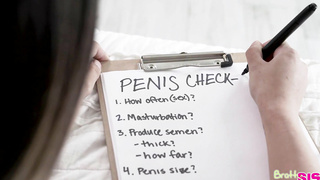 PENIS CHECK-
1. How often (sex)?
2. Masturbation?
3. Produce semen?
- thick?
- how far?
4. Penis size?
Bratty
SIS